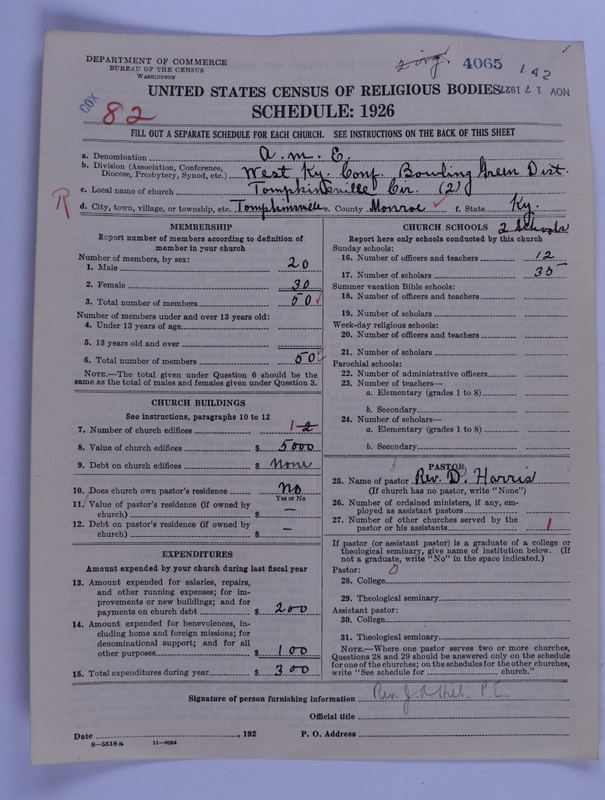 DEPARTMENT OF COMMERCE
BUREAU OF THE CENSUS
WASHINGTON
4065
142
NOV 17 1927
COX
82
UNITED STATES CENSUS OF RELIGIOUS BODIES
SCHEDULE: 1926
FILL OUT A SEPARATE SCHEDULE FOR EACH CHURCH. SEE INSTRUCTIONS ON THE BACK OF THIS SHEET
a. Denomination A. M. E.
b. Division (Association, Conference, Diocese, Presbytery, Synod, etc.) West Ky. Conf. Bowling Green Dist.
c. Local name of church Tompkinsville Cir. (2)
R
d. City, town, village, or township, etc. Tompkinsville e. County Monroe f. State Ky.
MEMBERSHIP
Report number of members according to definition of
member in your church
Number of members, by sex:
1. Male 20
2. Female 30
3. Total number of members 50
Number of members under and over 13 years old:
4. Under 13 years of age
5. 13 years old and over
6. Total number of members 50
NOTE.—The total given under Question 6 should be the
same as the total of males and females given under Question 3.
CHURCH BUILDINGS
See instructions, paragraphs 10 to 12
7. Number of church edifices 1 2
8. Value of church edifices $ 5000
9. Debt on church edifices $ None
10. Does church own pastor's residence No
Yes or No
11. Value of pastor's residence (if owned by
church) $ —
12. Debt on pastor's residence (if owned by
church) $ —
EXPENDITURES
Amount expended by your church during last fiscal year
13. Amount expended for salaries, repairs,
and other running expenses; for im-
provements or new buildings; and for
payments on church debt $ 200
14. Amount expended for benevolences, in-
cluding home and foreign missions; for
denominational support; and for all
other purposes $ 100
15. Total expenditures during year $ 300
CHURCH SCHOOLS 2 Schools
Report here only schools conducted by this church
Sunday schools:
16. Number of officers and teachers 12
17. Number of scholars 35
Summer vacation Bible schools:
18. Number of officers and teachers
19. Number of scholars
Week-day religious schools:
20. Number of officers and teachers
21. Number of scholars
Parochial schools:
22. Number of administrative officers
23. Number of teachers—
a. Elementary (grades 1 to 8)
b. Secondary
24. Number of scholars—
a. Elementary (grades 1 to 8)
b. Secondary
PASTOR
25. Name of pastor Rev. D. Harris
(If church has no pastor, write "None")
26. Number of ordained ministers, if any, em-
ployed as assistant pastors
27. Number of other churches served by the
pastor or his assistants 1
If pastor (or assistant pastor) is a graduate of a college or
theological seminary, give name of institution below. (If
not a graduate, write "No" in the space indicated.)
Pastor: 0
28. College
29. Theological seminary
Assistant pastor:
30. College
31. Theological seminary
NOTE.—Where one pastor serves two or more churches,
Questions 28 and 29 should be answered only on the schedule
for one of the churches; on the schedules for the other churches,
write "See schedule for church."
Signature of person furnishing information Rev. J.
Official title
Date , 192 P. O. Address
8-5518a 11-9084